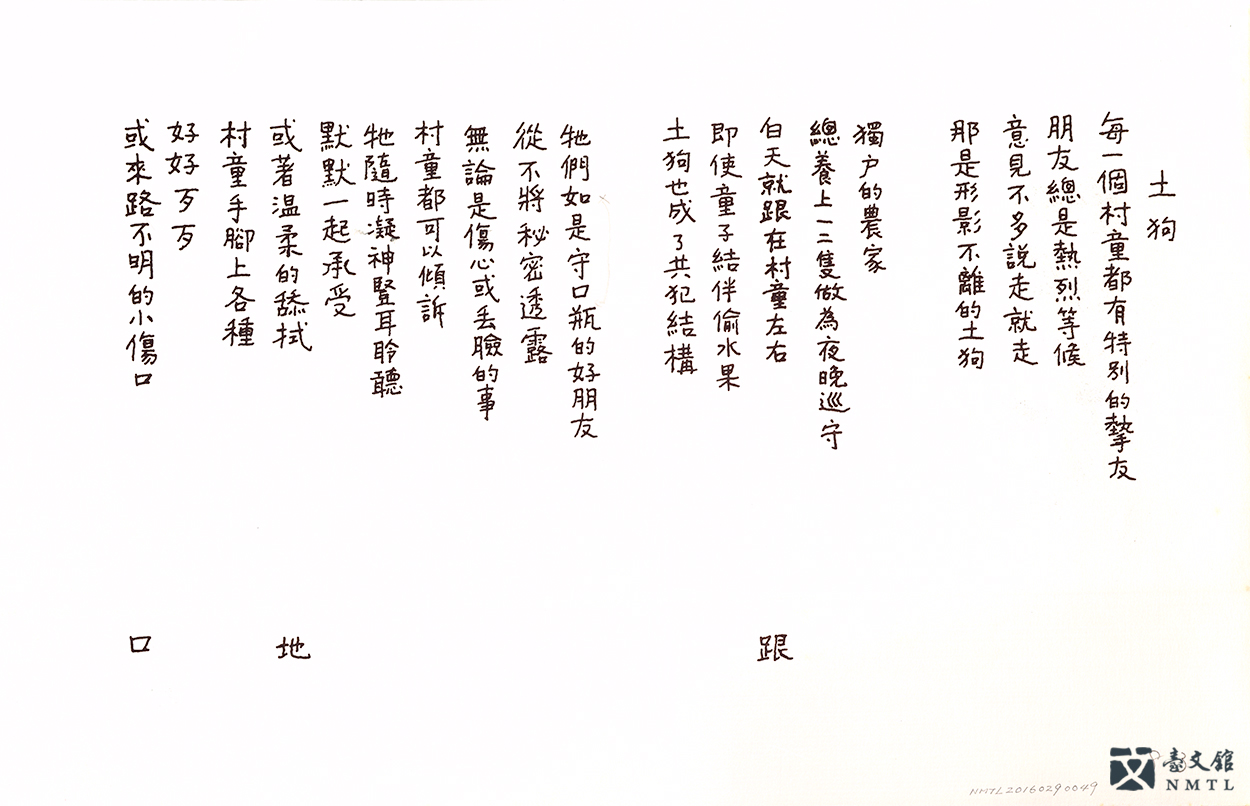 土狗
每一個村童都有特別的摯友
朋友總是熱烈等候
意見不多說走就走
那是形影不離的土狗
獨户的農家
總養上一二隻做為夜晚巡守
白天就跟在村童左右
即使童子結伴偷水果
土狗也成了共犯結構
牠們如是守口瓶的好朋友
從不將秘密透露
無論是傷心或丟臉的事
村童都可以傾訴
牠隨時凝神豎耳聆聽
默默一起承受
或著溫柔的舔拭
村童手腳上各種
好好歹歹
或來路不明的小傷口
跟
地
口
臺文館
NMTL
NMTL20160290049